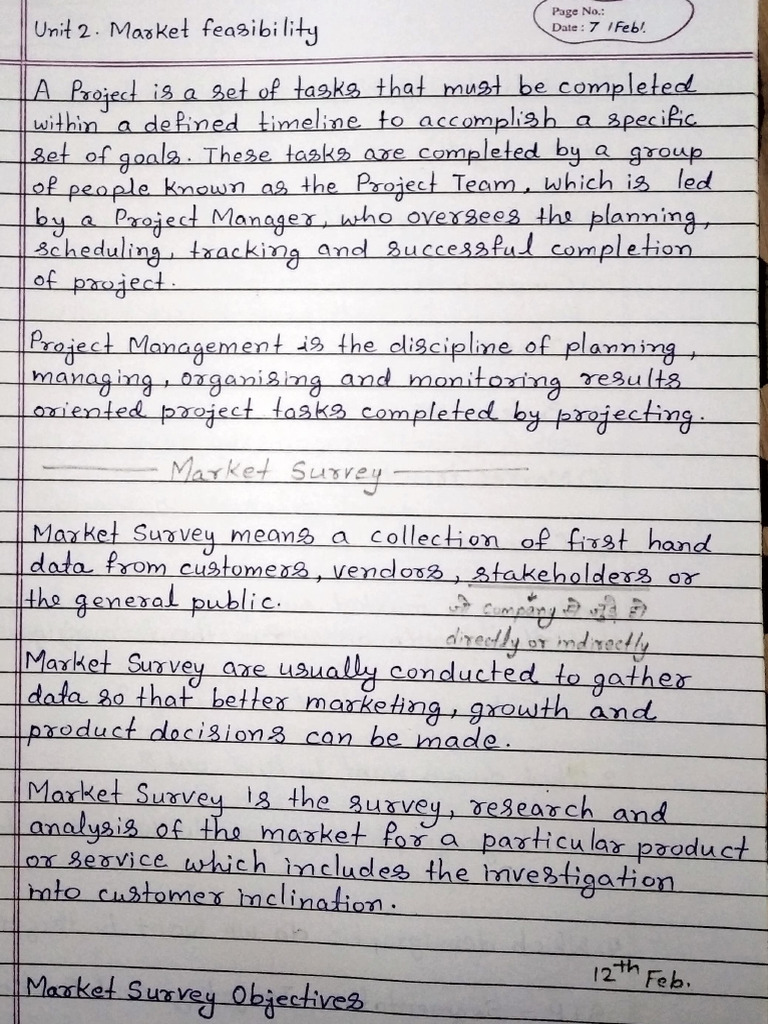 Unit 2. Market feasibility
Page No.:
Date: 7 / Feb/.
A Project is a set of tasks that must be completed
within a defined timeline to accomplish a specific
set of goals. These tasks are completed by a group
of people known as the Project Team, which is led
by a Project Manager, who oversees the planning,
scheduling, tracking and successful completion
of project.
Project Management is the discipline of planning,
managing, organising and monitoring results
oriented project tasks completed by projecting.
Market Survey
Market Survey means a collection of first hand
data from customers, vendors, stakeholders or
the general public.
जो company से जुड़े हो
directly or indirectly
Market Survey are usually conducted to gather
data so that better marketing, growth and
product docisions can be made.
Market Survey is the survey, research and
analysis of the market for a particular product
or service which includes the investigation
into customer inclination.
12th Feb.
Market Survey Objectives